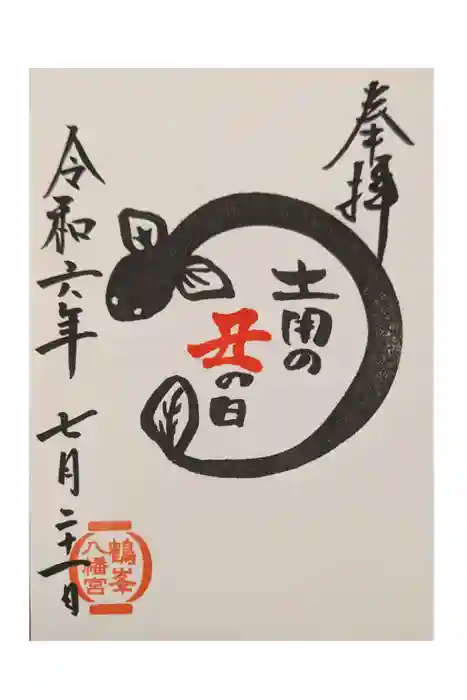 奉拝
土用の
丑の日
令和六年 七月二十一日
鶴峯
八幡宮